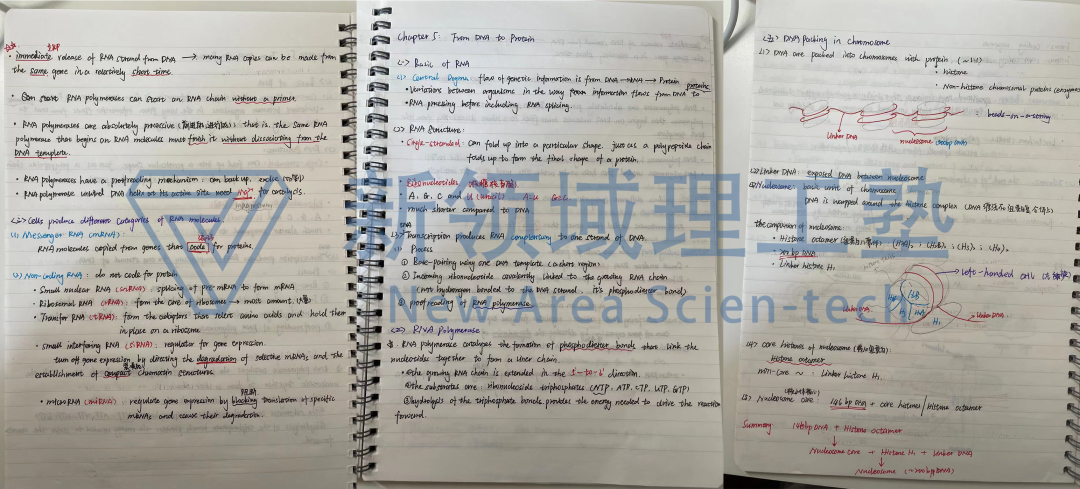 立即
• immediate release of RNA strand from DNA → many RNA copies can be made from
the same gene in a relatively short time.
• RNA polymerases can start an RNA chain without a primer
• RNA polymerases are absolutely processive that is, the same RNA
polymerase that begins an RNA molecules must finish it without dissociating from the
DNA template.
• RNA polymerases have a proofreading mechanism: can back up, excise
• RNA polymerase unwind DNA helix at its active site need Mg²⁺ for catalysis.
<2> Cells produce different categories of RNA molecules.
(1) Messenger RNA (mRNA):
RNA molecules copied from genes that code for proteins.
(2) Non-coding RNA: do not code for protein
• Small nuclear RNA (snRNA): splicing of pre mRNA to form mRNA
• Ribosomal RNA (rRNA): form the core of ribosomes → most amount
• Transfer RNA (tRNA): form the adaptors that select amino acids and hold them
in place on a ribosome
• small interfering RNA (siRNA): regulator for gene expression
turn off gene expression by directing the degradation of selective mRNAs and the
establishment of compact chromatin structures.
阻断
• microRNA (miRNA): regulate gene expression by blocking translation of specific
mRNAs and cause their degradation.
Chapter 5: From DNA to Protein
<一> Basic of RNA
(1) Central Dogma: flow of genetic information is from DNA → RNA → Protein
• Variations between organisms in the way information flows from DNA to proteins
• RNA processing before including RNA splicing.
<二> RNA Structure:
• Single-stranded: can fold up into a particular shape, just as a polypeptide chain
folds up to form the final shape of a protein.
• Ribonucleotides
A, G, C and U (Uracil) A=U G≡C
much shorter compared to DNA
DNA
<1> Transcription produces RNA complementary to one strand of DNA.
(1) Process
① Base-pairing using one DNA template (a short region)
② Incoming ribonucleotide covalently linked to the growing RNA chain
(not hydrogen bonded to the DNA strand. It's phosphodiester bond)
③ proofreading of RNA polymerase
(2) RNA Polymerase
RNA polymerase catalyzes the formation of phosphodiester bonds that link the
nucleotides together to form a linear chain.
① the growing RNA chain is extended in the 5'-to-3' direction.
② the substrates are: ribonucleotide triphosphates (NTP, ATP, CTP, UTP, GTP)
③ hydrolysis of the triphosphate bonds provides the energy needed to drive the reaction
forward.
<五> DNA Packing in chromosome
<1> DNA are packed into chromosomes with protein
• histone
• Non-histone chromosomal proteins
: beads-on-a-string
Linker DNA
nucleosome (200bp DNA)
(2) Linker DNA: exposed DNA between nucleosome
(3) Nucleosome: basic unit of chromosome
DNA is wrapped around the histone complex
the composition of nucleosome:
• Histone octamer (H2A)₂ ; (H2B)₂ ; (H3)₂ ; (H4)₂
• Linker histone H₁
left-handed coil
Linker DNA
Linker DNA
H₁
(4) core histones of nucleosome
histone octamer
non-core ~ : Linker histone H₁.
(5) Nucleosome core: 146 bp DNA + core histones / Histone octamer
Summary: 146bp DNA + Histone octamer
↓
Nucleosome core + Histone H₁ + Linker DNA
↓
Nucleosome (~200bp DNA)
新领域理工塾
New Area Scien-tech